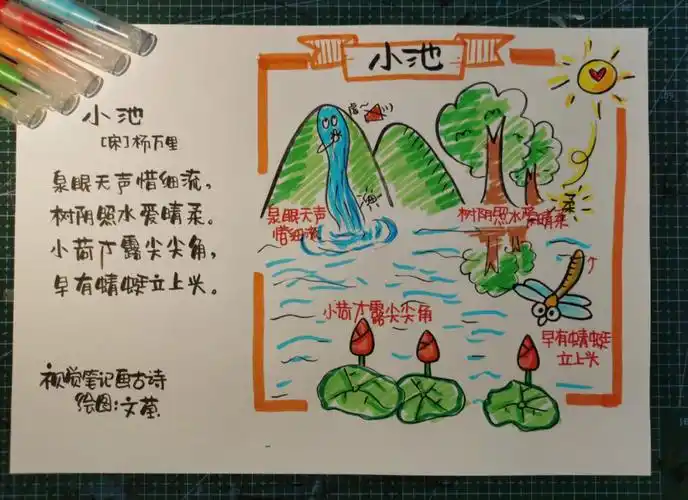 小池
[宋]杨万里
泉眼无声惜细流，
树阴照水爱晴柔。
小荷才露尖尖角，
早有蜻蜓立上头。
视觉笔记画古诗
绘图：文堇
小池
泉眼无声
惜细流
树阴照水爱晴柔
柔
小荷才露尖尖角
早有蜻蜓
立上头